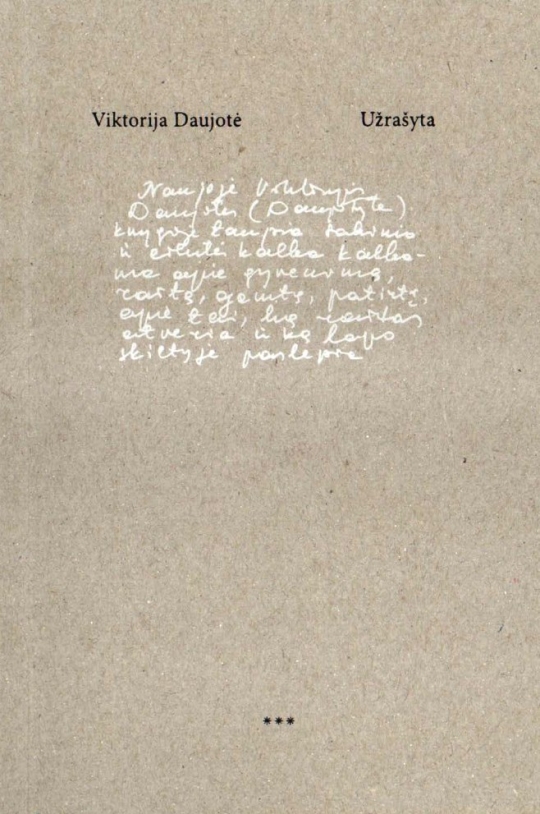 Viktorija Daujotė Užrašyta
Naujoje Viktorijos
Daujotės (Daujotytė)
knygoje taupia sakinio
ir eilutės kalba kalba-
ma apie gyvenimą,
raštą, gamtą, patirtį,
apie tai, ką raštas
atveria ir ką lapo
skiltyje paslepia
***